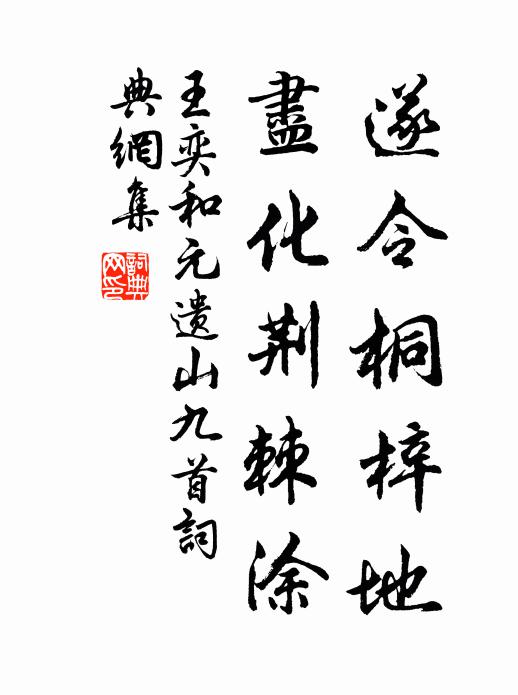 遂令桐梓地
盡化荆棘涂
王奕和元遺山九首詞
典網集
詞典网印